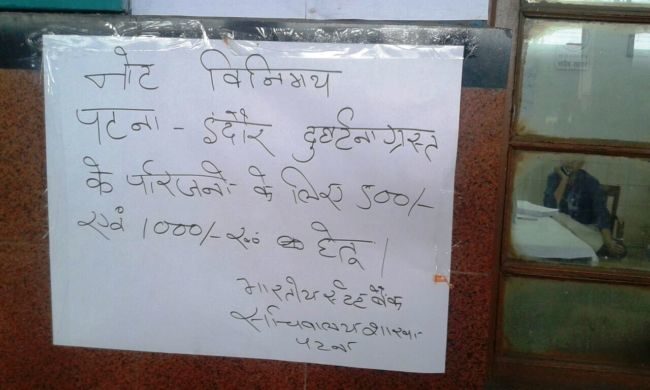 नोट विनिमय
पटना - इंदौर दुर्घटनाग्रस्त
के परिजनो के लिए 500/-
एवं 1000/- रू॰ हेतू।
भारतीय स्टेट बैंक
सचिवालय शाखा
पटना